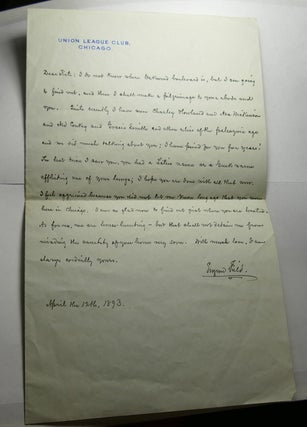 UNION LEAGUE CLUB,
CHICAGO.
I do not know where boulevard is, but I am going
to find out, and then I shall make a pilgrimage to your abode and
you. Quite recently I have seen Charley and
and and Smith and
and we did much talking about you; I have for you for years!
The last time I saw you, you had a Latin name or a Greek name
afflicting one of your lungs; I hope you are done with all that now.
I feel aggrieved because you did not let me know long ago that you were
here in Chicago. I am so glad now to find out just where you are located.
As for me, we are house-hunting – but that shall not detain me from
invading the sanctity of your home very soon. With much love, I am
always cordially yours,
Eugene Field.
April the 12th, 1893.